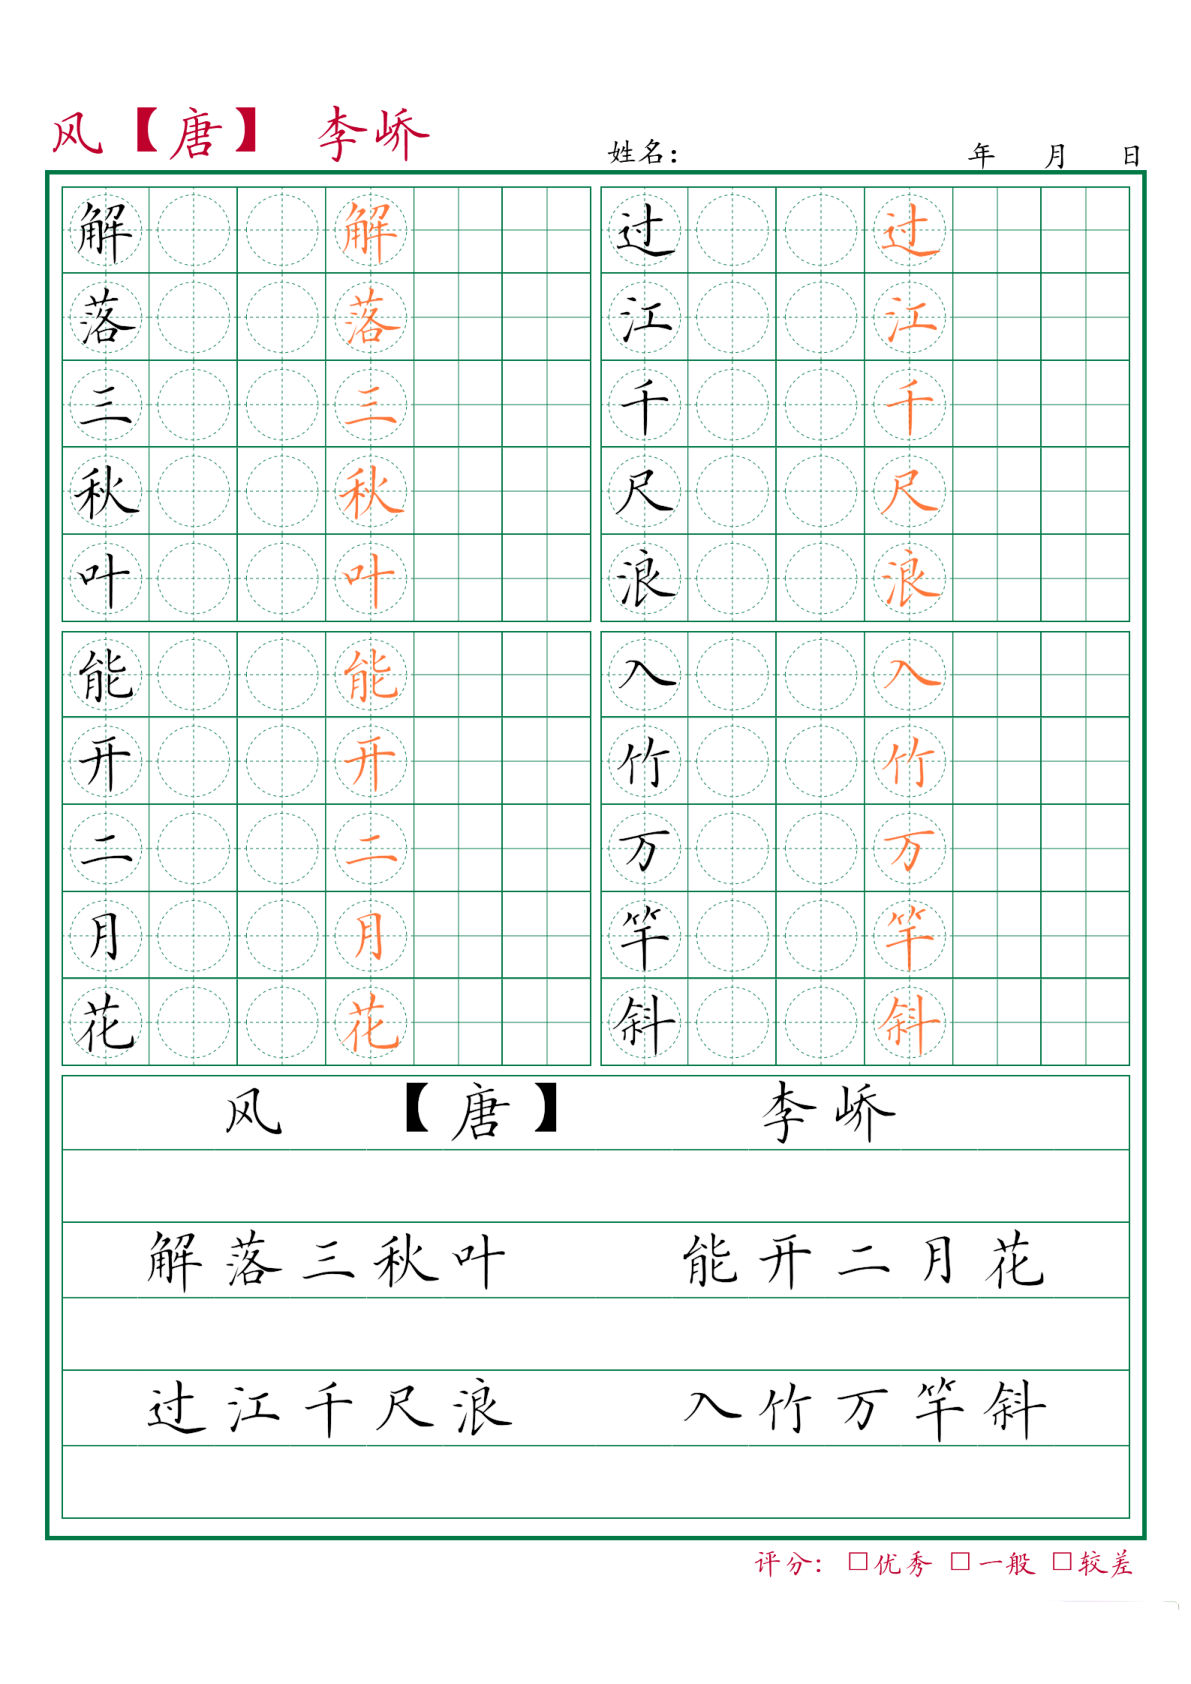 风【唐】 李峤
姓名： 年 月 日
解 解 过 过
落 落 江 江
三 三 千 千
秋 秋 尺 尺
叶 叶 浪 浪
能 能 入 入
开 开 竹 竹
二 二 万 万
月 月 竿 竿
花 花 斜 斜
风 【唐】 李峤
解落三秋叶 能开二月花
过江千尺浪 入竹万竿斜
评分： □优秀 □一般 □较差